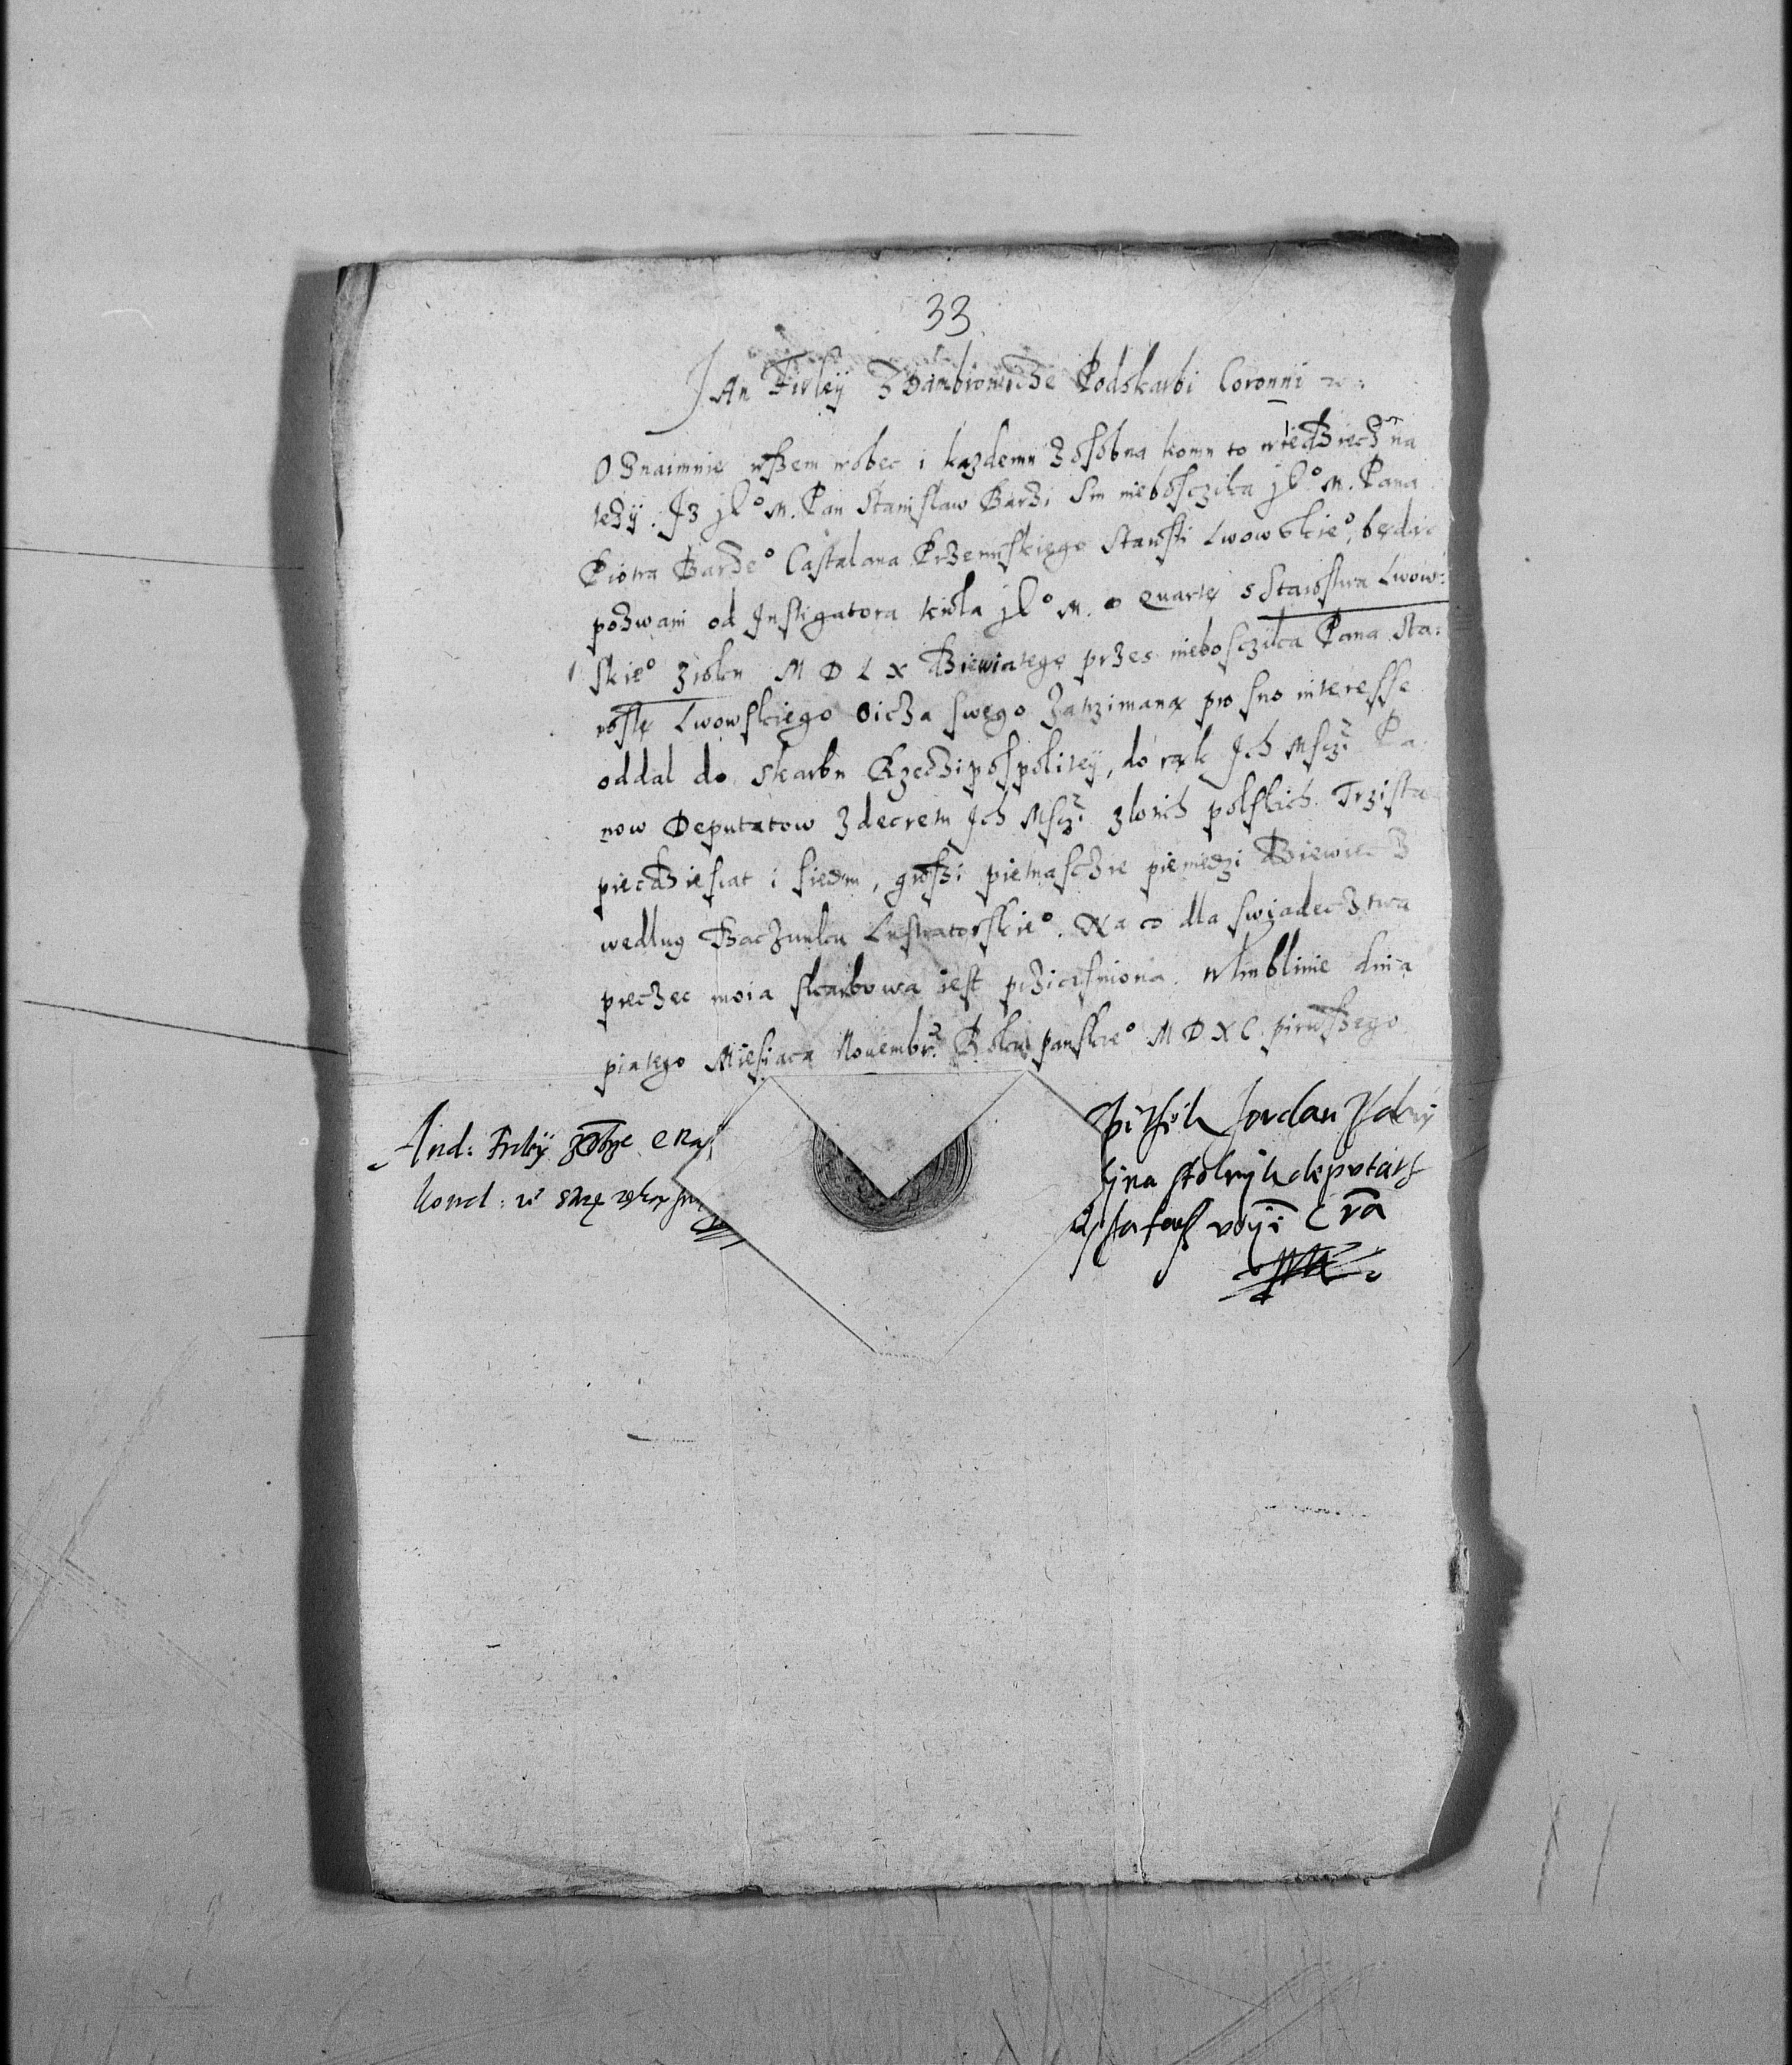 33
JAn Firleij Z Dambrowicze Podskarbi Coronni
OZnaimuie wszem wobec i kazdemu Zosobna komu to wiedziecz na
lezÿ. Iz JK° M. Pan Stanislaw Barzi Sin nieboszczika JK° M. Pana
Piotra Barze° Castalana Przemiskiego Starosti Lwowskie°, bedac
pozwani od Instigatora krola JK° M. o Quartę s Starostwa Lwow:
skie° z roku M D L X dziewiatego przes nieboszczika Pana Sta:
rostę Lwowskiego oicza swego Zatrzimaną pro suo interesse
oddal do skarbu Rzeczipospolitey, do rąk Ich Mscz. Pa
now Deputatow z decretu Ich Mscz. zlotich polskich Trzista
piecdziesiat i siedm, groszi pietnasczie pieniedzi dziewiecz
wedlug Raczunku Lustratorskie°. Na co dla swiadecztwa
pieczec moia skarbowa iest przicisniona. w Lublinie dnia
piatego Miesiaca Nouembr. Roku panskie° M D XC pirwszego
And: Firleÿ
Jordan
stolnyk deputath